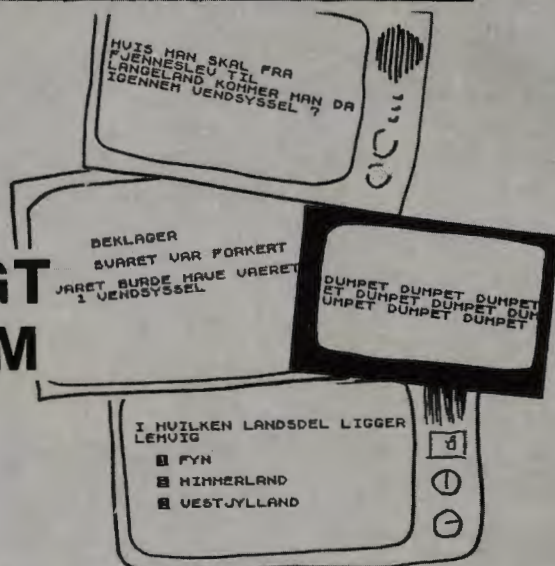 HVIS MAN SKAL FRA
FJENNESLEV TIL
LANGELAND KOMMER MAN DA
IGENNEM VENDSYSSEL ?
BEKLAGER
SVARET VAR FORKERT
VARET BURDE HAVE VAERET
1 VENDSYSSEL
GT
M
DUMPET DUMPET DUMPET
ET DUMPET DUMPET DUM
UMPET DUMPET DUMPET
I HVILKEN LANDSDEL LIGGER
LEMVIG
1 FYN
2 HIMMERLAND
3 VESTJYLLAND